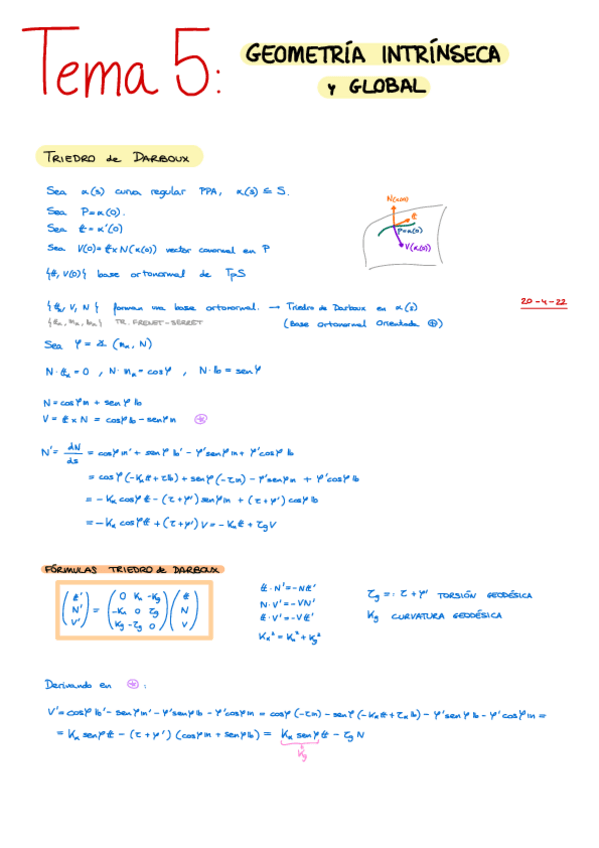 Tema 5: GEOMETRÍA INTRÍNSECA
y GLOBAL
TRIEDRO de DARBOUX
Sea α(s) curva regular PPA, α(s) ⊆ S.
Sea P=α(0).
Sea 𝕥=α'(0)
Sea V(0)=𝕥×N(α(0)) vector conormal en P
{𝕥, V(0)} base ortonormal de TpS
N(α(0))
𝕥
P=α(0)
V(α(0))
{𝕥α, V, N} forman una base ortonormal. → Triedro de Darboux en α(s)
20-4-22
{𝕥α, nα, bα} TR. FRENET-SERRET
(Base ortonormal Orientada ⊕)
Sea φ = ∡ (nα, N)
N·𝕥α=0 , N·nα=cosφ , N·b=senφ
N=cosφn + senφb
V = 𝕥×N = cosφb-senφn ⊛
N'= dN/ds = cosφn'+ senφb'-φ'senφn+ φ'cosφb
= cosφ(-Kα𝕥+τb)+senφ(-τn)-φ'senφn + φ'cosφb
= -Kα cosφ𝕥-(τ+φ')senφn+(τ+φ')cosφb
= -Kα cosφ𝕥+(τ+φ')V=-Kn𝕥+τgV
FÓRMULAS TRIEDRO de DARBOUX
(𝕥' N' V') = (0 Kn -Kg -Kn 0 τg Kg -τg 0) (𝕥 N V)
𝕥·N'=-N𝕥'
N·V'=-VN'
𝕥·V'=-V𝕥'
Kα²=Kn²+Kg²
τg =: τ+φ' TORSIÓN GEODÉSICA
Kg CURVATURA GEODÉSICA
Derivando en ⊛:
V'=cosφb'-senφn'-φ'senφb-φ'cosφn = cosφ(-τn)-senφ(-Kα𝕥+ταb)-φ'senφb-φ'cosφn =
= Kα senφ𝕥-(τ+φ')(cosφn+senφb)= Kα senφ𝕥-τgN
Kg